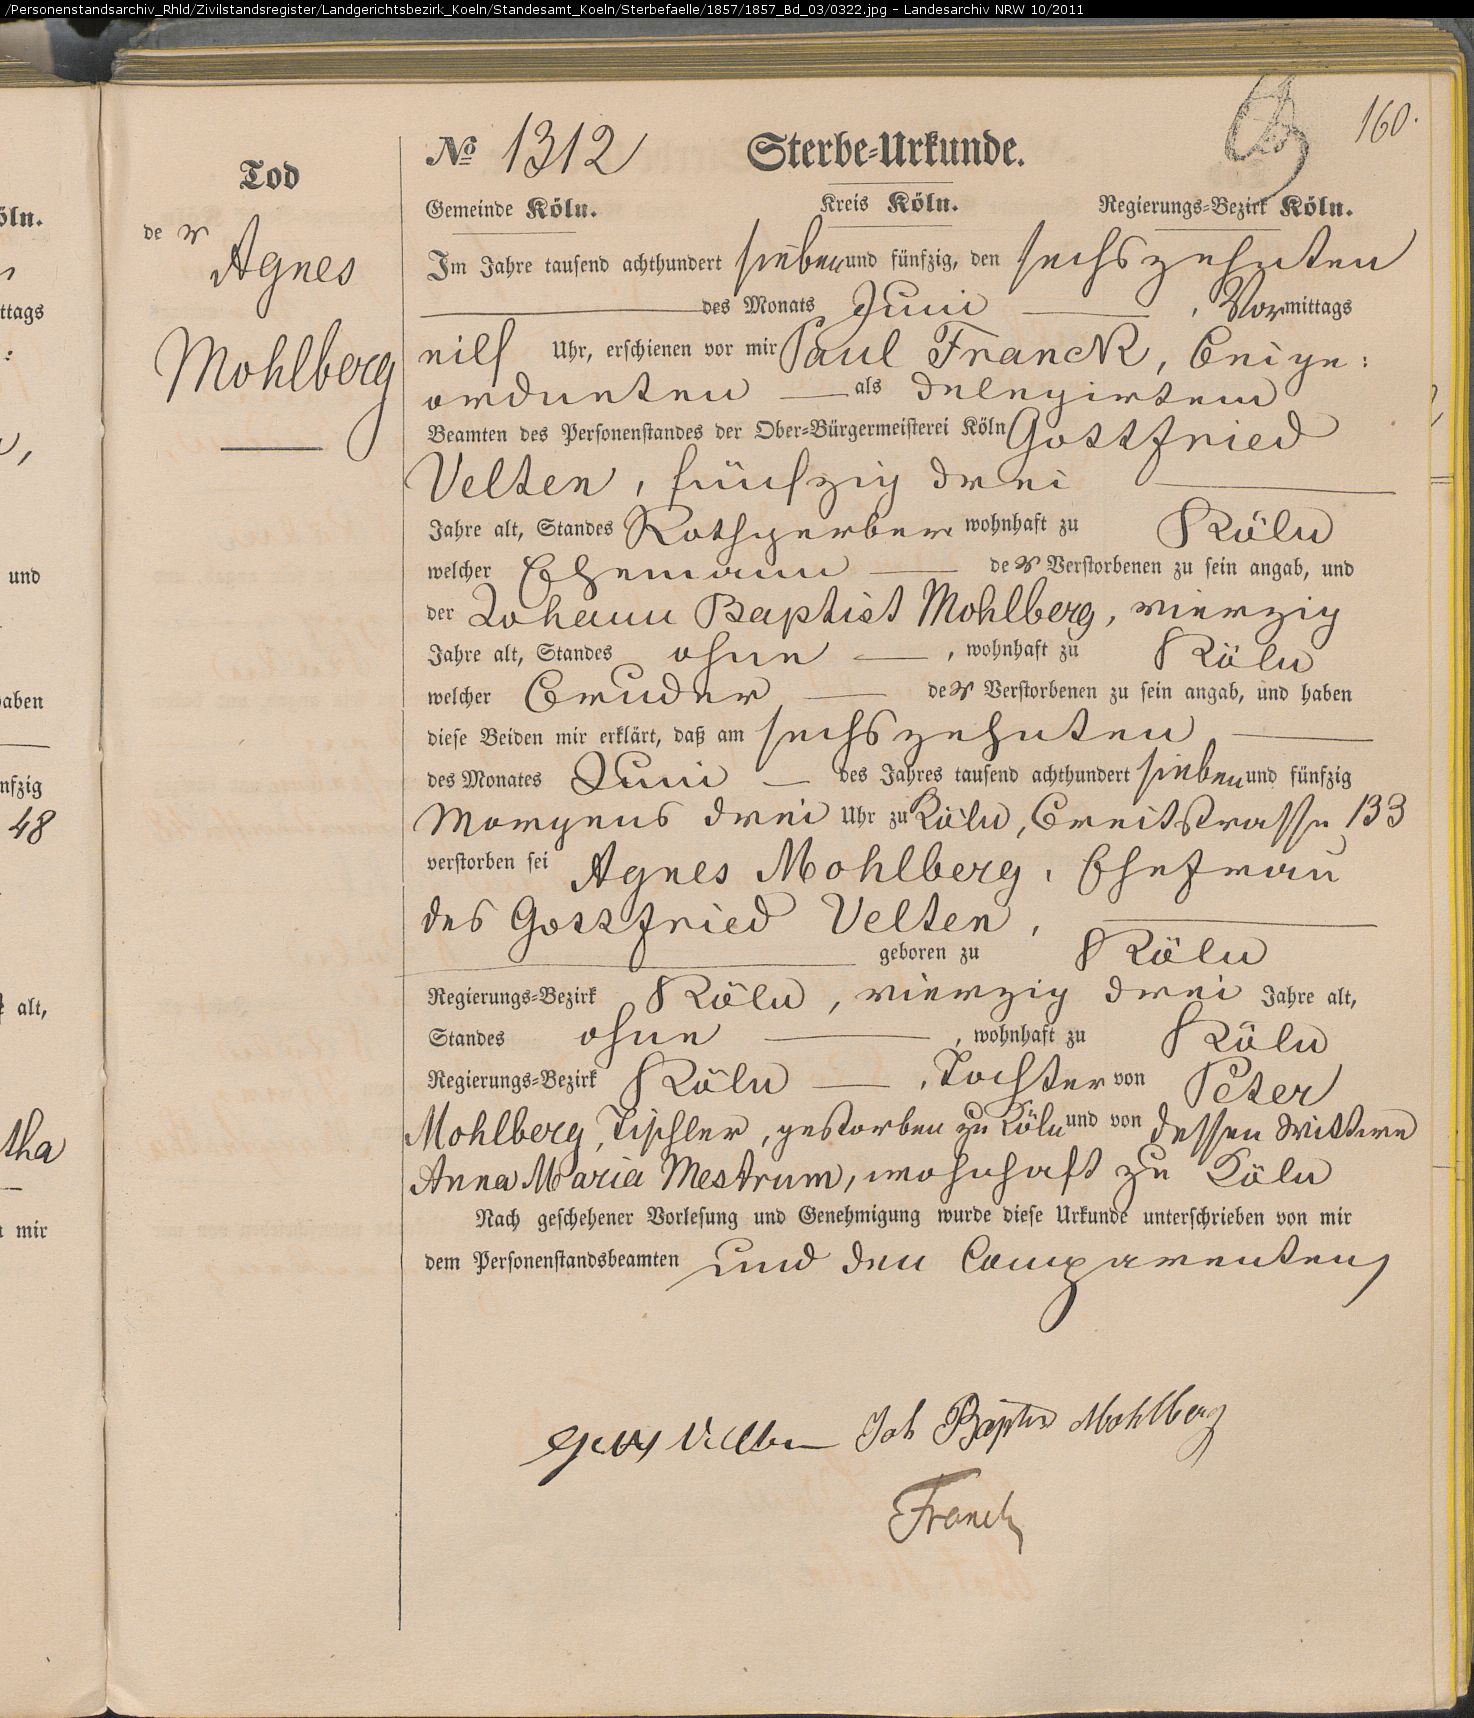 /Personenstandsarchiv_Rhld/Zivilstandsregister/Landgerichtsbezirk_Koeln/Standesamt_Koeln/Sterbefaelle/1857/1857_Bd_03/0322.jpg - Landesarchiv NRW 10/2011
160.
öln.
ttags
und
haben
nfzig
48
alt,
tha
mir
Tod
der
Agnes
Mohlberg
No 1312 Sterbe-Urkunde.
Gemeinde Köln. Kreis Köln. Regierungs-Bezirk Köln.
Im Jahre tausend achthundert sieben und fünfzig, den sechszehnten
des Monats Juni, Vormittags
eilf Uhr, erschienen vor mir Paul Franck, Beige:
ordneten als delegirtem
Beamten des Personenstandes der Ober-Bürgermeisterei Köln Gottfried
Velten, fünfzig drei
Jahre alt, Standes Rothgerber wohnhaft zu Köln
welcher Ehemann der Verstorbenen zu sein angab, und
der Johann Baptist Mohlberg, vierzig
Jahre alt, Standes ohne, wohnhaft zu Köln
welcher Bruder der Verstorbenen zu sein angab, und haben
diese Beiden mir erklärt, daß am sechszehnten
des Monates Juni des Jahres tausend achthundert sieben und fünfzig
Morgens drei Uhr zu Köln, Breitstrasse 133
verstorben sei Agnes Mohlberg, Ehefrau
des Gottfried Velten,
geboren zu Köln
Regierungs-Bezirk Köln, vierzig drei Jahre alt,
Standes ohne, wohnhaft zu Köln
Regierungs-Bezirk Köln, Tochter von Peter
Mohlberg, Tischler, gestorben zu Köln und von dessen Wittwe
Anna Maria Mestrum, wohnhaft zu Köln
Nach geschehener Vorlesung und Genehmigung wurde diese Urkunde unterschrieben von mir
dem Personenstandsbeamten und den Comparenten,
Velten Joh Baptis Mohlberg
Franck